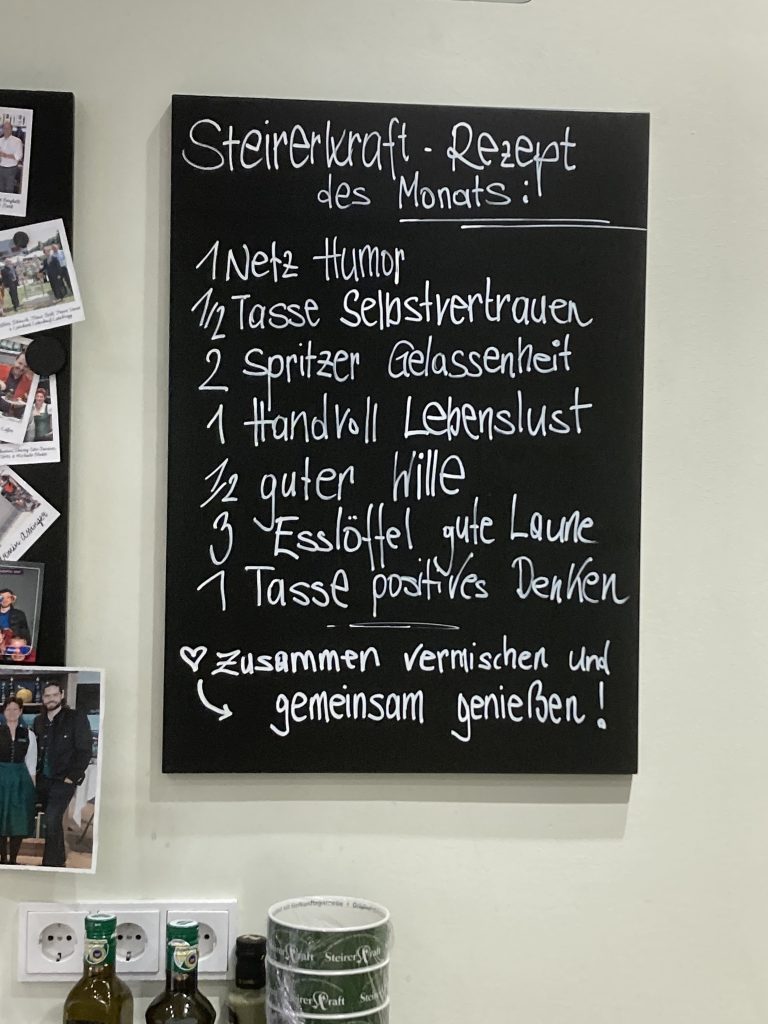 Steirerkraft - Rezept
des Monats:
1 Netz Humor
1/2 Tasse Selbstvertrauen
2 Spritzer Gelassenheit
1 Handvoll Lebenslust
1/2 guter Wille
3 Esslöffel gute Laune
1 Tasse positives Denken
♡ Zusammen vermischen und
gemeinsam genießen!
SteirerKraft
SteirerKraft